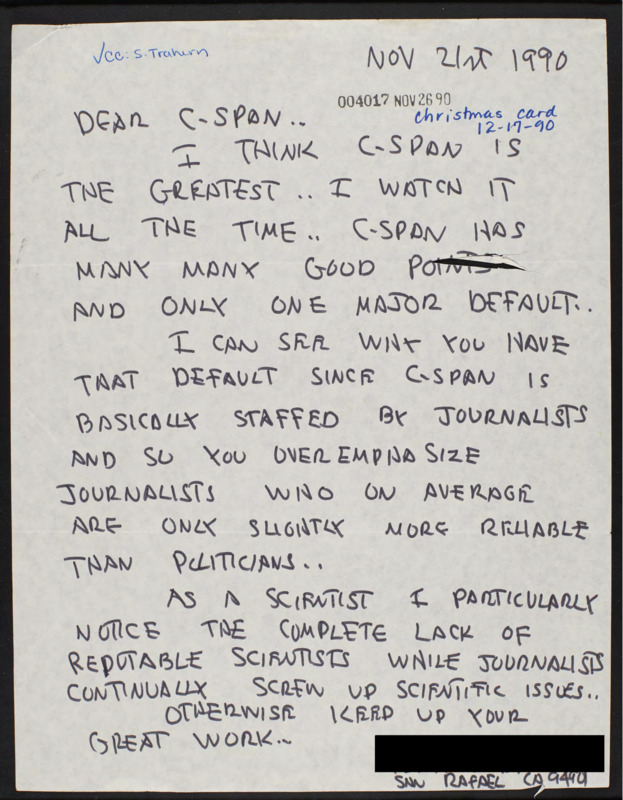 √cc: S. Trahern
NOV 21st 1990
004017 NOV 26 90
DEAR C-SPAN..
christmas card
12-17-90
I THINK C-SPAN IS
THE GREATEST.. I WATCH IT
ALL THE TIME.. C-SPAN HAS
MANY MANY GOOD POINTS
AND ONLY ONE MAJOR DEFAULT..
I CAN SEE WHY YOU HAVE
THAT DEFAULT SINCE C-SPAN IS
BASICALLY STAFFED BY JOURNALISTS
AND SO YOU OVEREMPHASIZE
JOURNALISTS WHO ON AVERAGE
ARE ONLY SLIGHTLY MORE RELIABLE
THAN POLITICIANS..
AS A SCIENTIST I PARTICULARLY
NOTICE THE COMPLETE LACK OF
REPUTABLE SCIENTISTS WHILE JOURNALISTS
CONTINUALLY SCREW UP SCIENTIFIC ISSUES..
OTHERWISE KEEP UP YOUR
GREAT WORK..
SAN RAFAEL CA